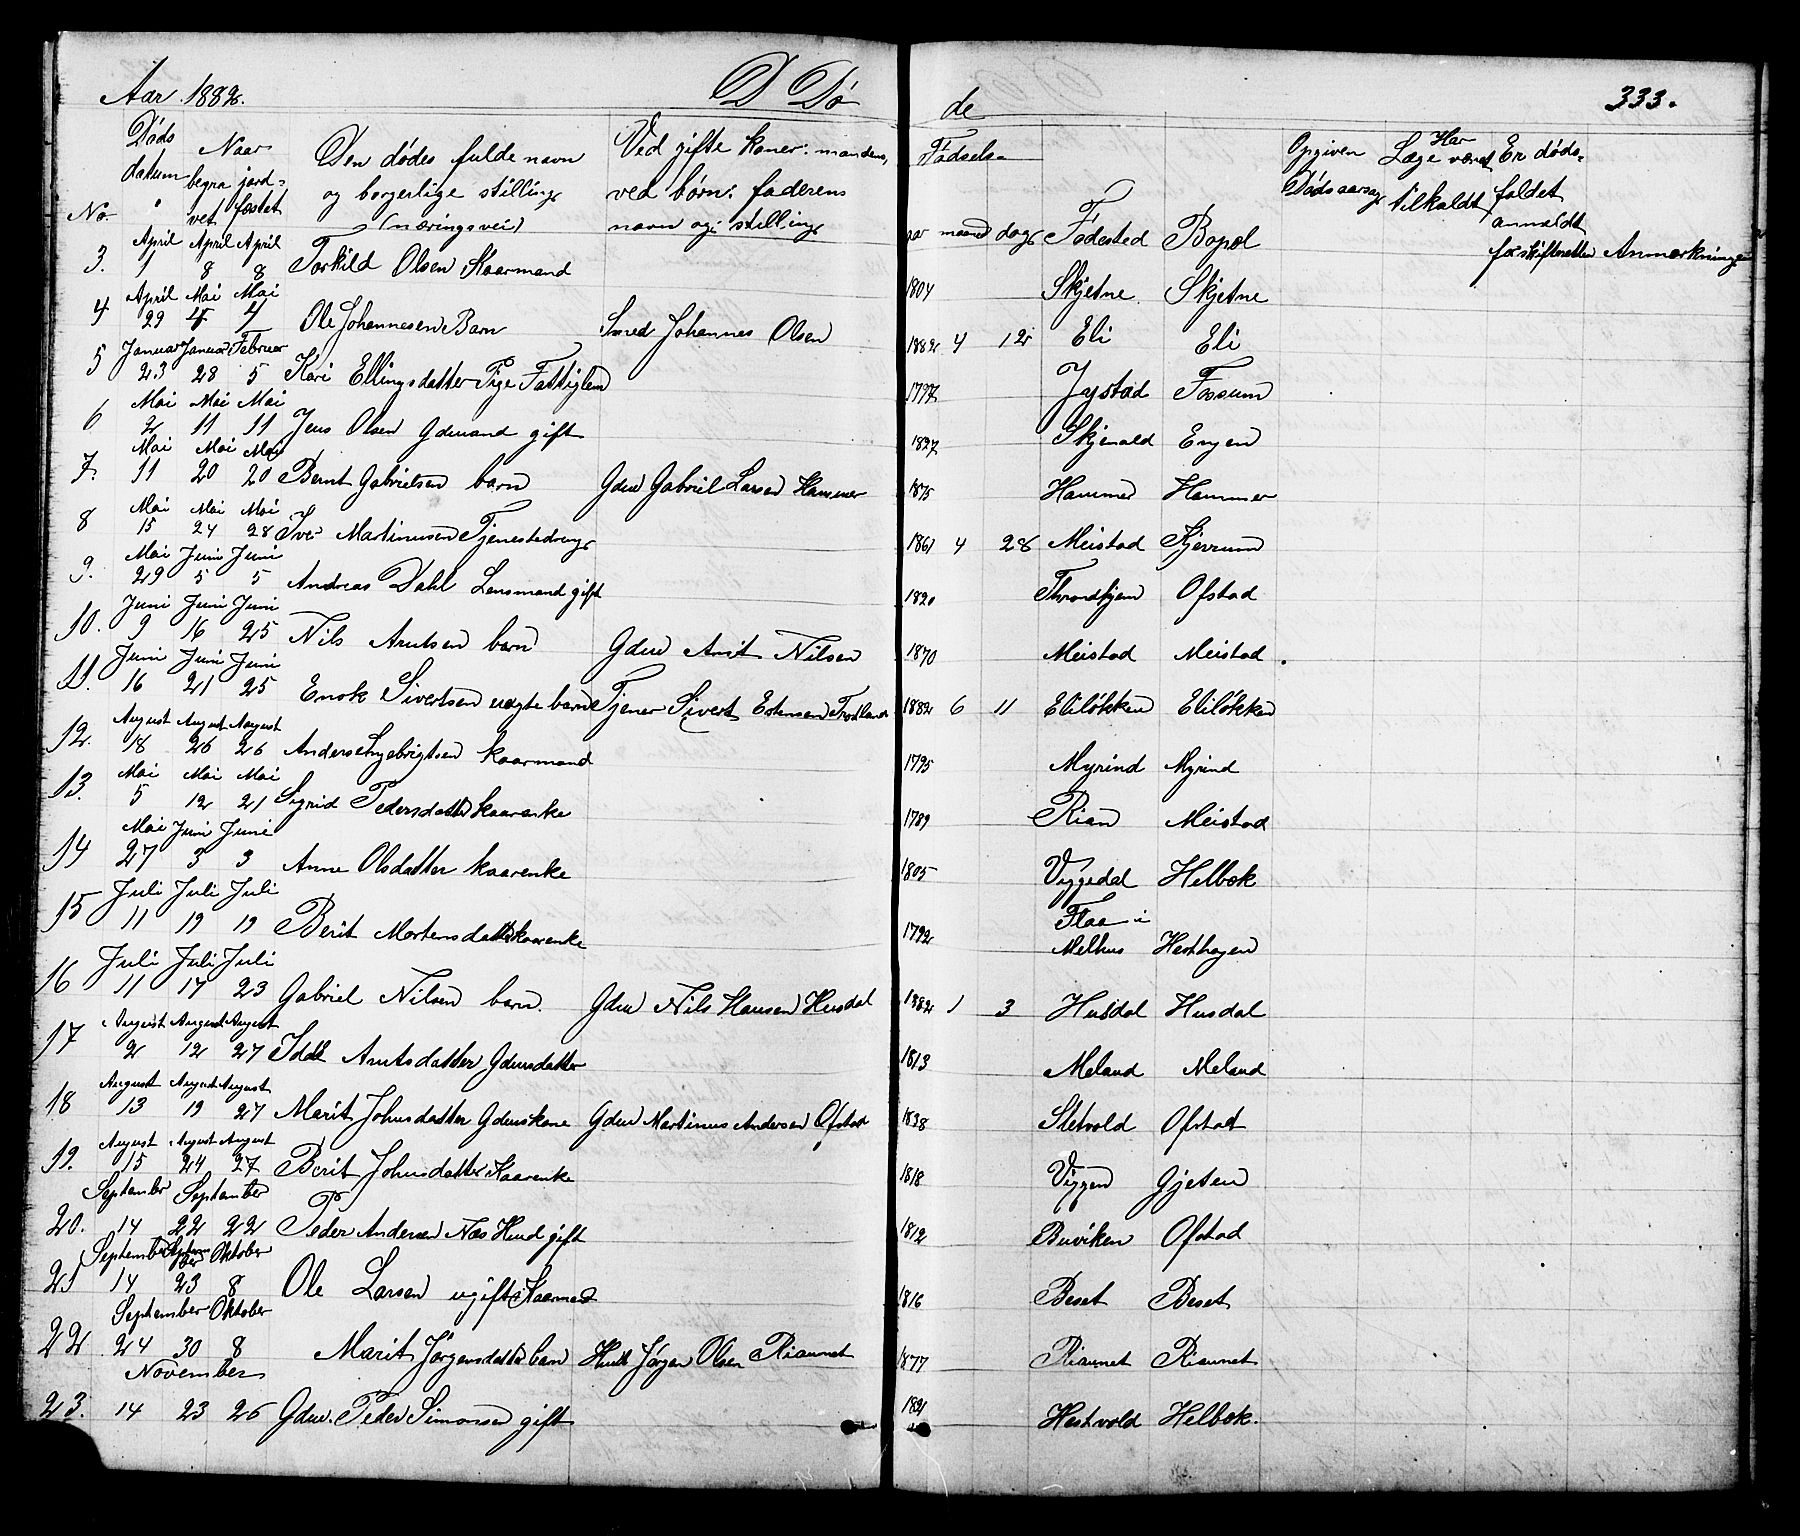 Aar 1882. D Dø de 333.
No. Døds datum Naar begra vet jord= fæstet Den dødes fulde navn og borgerlige stilling (næringsvei) Ved gifte koner: mandens, ved børn: faderens navn og stilling Fødsels= aar maaned dag Fødested Bopæl Opgiven Dødsaarsag Har Læge været tilkaldt Er døds= faldet anmeldt for skifteretten Anmærkninger
3. April 1 April 8 April 8 Torkild Olsen Kaarmand 1804 Skjetne Skjetne
4 April 29 Mai 4 Mai 4 Ole Johannesen Barn Smed Johannes Olsen 1882 4 12 Eli Eli
5 Januar 23 Januar 28 Februar 5 Kari Ellingsdatter Pige Fattiglem 1797 Jystad Fossum
6 Mai 2 Mai 11 Mai 11 Jens Olsen Gdmand gift 1827 Skjenald Engen
7. Mai 11 Mai 20 Mai 20 Bernt Gabrielsen barn Gdm Gabriel Larsen Hammer 1875 Hammer Hammer
8 Mai 15 Mai 24 Mai 28 Iver Martinusen Tjenestedreng 1861 4 28 Meistad Kjevrum
9. Mai 29 Juni 5 Juni 5 Andreas Dahl Lensmand gift 1820 Throndhjem Ofstad
10. Juni 9 Juni 16 Juni 25 Nils Arntsen barn Gdm Arnt Nilsen 1870 Meistad Meistad
11. Juni 16 Juni 21 Juni 25 Enok Sivertsen uægte barn Tjener Sivert Estensen Frostland 1882 6 11 Eliløkken Eliløkken
12. August 18 August 26 August 26 Anders Ingebrigtsen kaarmand 1795 Myrind Myrind
13. Mai 5 Mai 12 Mai 21 Sigrid Pedersdatter kaarenke 1789 Rian Meistad
14 Mai 27 Juni 3 Juni 3 Anne Olsdatter kaarenke 1805 Viggedal Helbæk
15 Juli 11 Juli 19 Juli 19 Berit Mortensdatter kaarenke 1792 Flaa i Melhus Hesthagen
16 Juli 11 Juli 17 Juli 23 Gabriel Nilsen barn. Gdm Nils Hansen Husdal 1882 1 3 Husdal Husdal
17 August 2 August 12 August 27 Arntsdatter Gdmsdatter 1813 Meland Meland
18 August 13 August 19 August 27 Marit Johnsdatter Gdmskone Gdm Martinus Andersen Ofstad 1838 Sletvold Ofstad
19. August 15 August 24 August 27 Berit Johnsdatter Kaarenke 1818 Viggen Gjeten
20. September 14 September 22 22 Peder Andersen Næs Hmd gift 1812 Buviken Ofstad
21 September 14 September 23 Oktober 8 Ole Larsen ugift Kaarmd 1816 Beset Beset
22 September 24 30 Oktober 8 Marit Jørgensdatter barn Hmd Jørgen Olsen Riaunet 1877 Riaunet Riaunet
23. November 14 23 26 Gdm. Peder Simonsen gift 1821 Hestvold Helbæk.